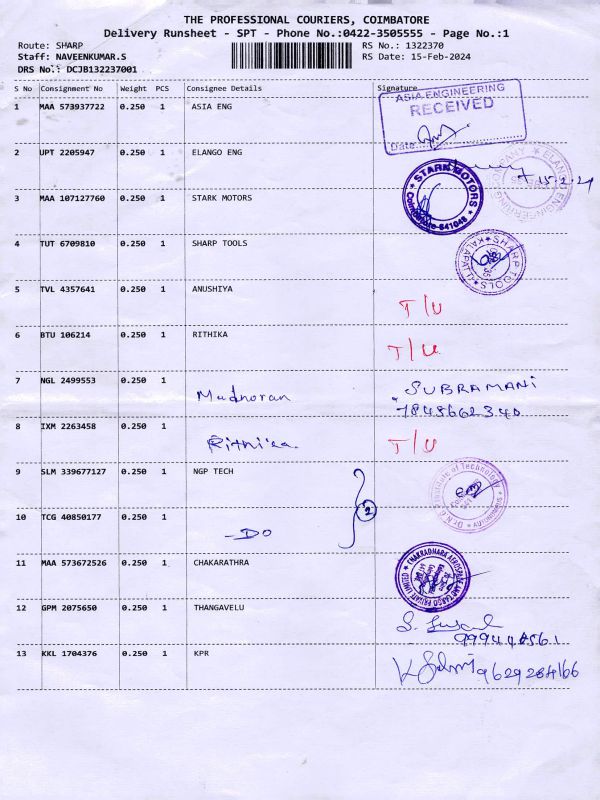 THE PROFESSIONAL COURIERS, COIMBATORE
Delivery Runsheet - SPT - Phone No.:0422-3505555 - Page No.:1
Route: SHARP RS No.: 1322370
Staff: NAVEENKUMAR.S RS Date: 15-Feb-2024
DRS No.: DCJB132237001
S No Consignment No Weight PCS Consignee Details Signature
1 MAA 573937722 0.250 1 ASIA ENG
ASIA ENGINEERING
RECEIVED
Date
2 UPT 2205947 0.250 1 ELANGO ENG
15-2-24
3 MAA 107127760 0.250 1 STARK MOTORS
STARK MOTORS
Coimbatore-641048
4 TUT 6709810 0.250 1 SHARP TOOLS
SHARP TOOLS
5 TVL 4357641 0.250 1 ANUSHIYA T/U
6 BTU 106214 0.250 1 RITHIKA T/U
7 NGL 2499553 0.250 1 SUBRAMANI
8 IXM 2263458 0.250 1 T/U
9 SLM 339677127 0.250 1 NGP TECH
Institute of Technology
AUTONOMOUS
10 TCG 40850177 0.250 1 -DO 2
11 MAA 573672526 0.250 1 CHAKARATHRA
CHAKRADHARA AEROSPACE AND CARGO PRIVATE LIMITED
12 GPM 2075650 0.250 1 THANGAVELU
13 KKL 1704376 0.250 1 KPR
9629284166